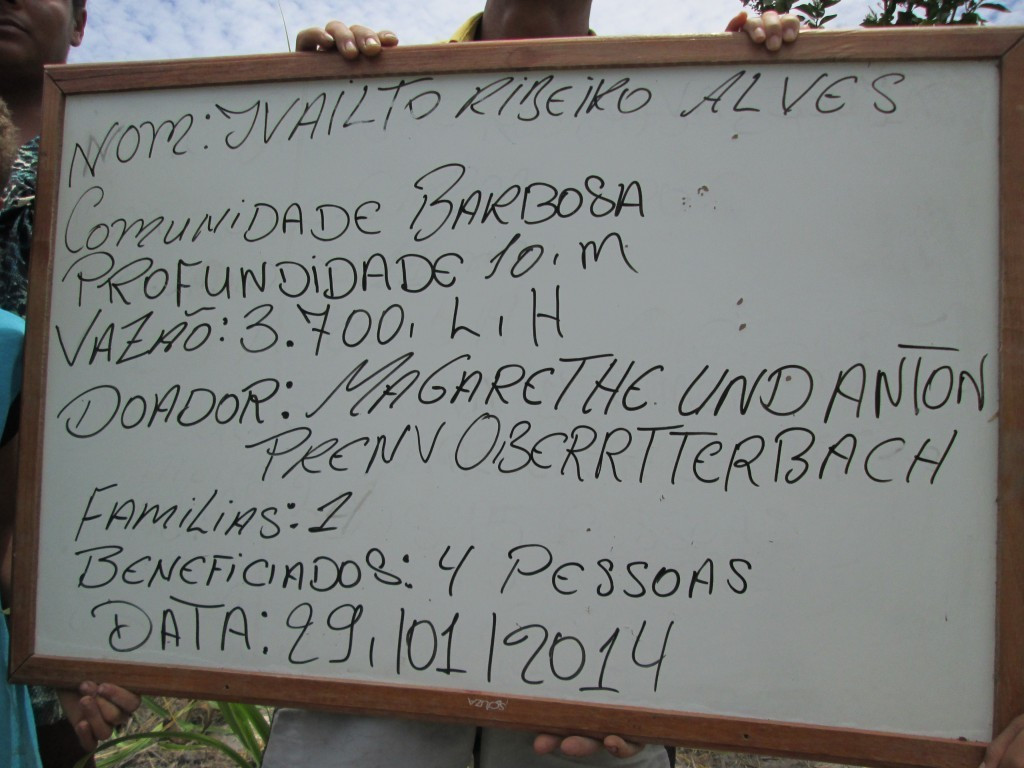 NOM: IVAILTO RIBEIRO ALVES
COMUNIDADE BARBOSA
PROFUNDIDADE 10. M
VAZÃO: 3.700. L. H
DOADOR: MAGARETHE UND ANTON
PRENV OBERRTTERBACH
FAMILIAS: 1
BENEFICIADOS: 4 PESSOAS
DATA: 29./01/2014
SOUZA